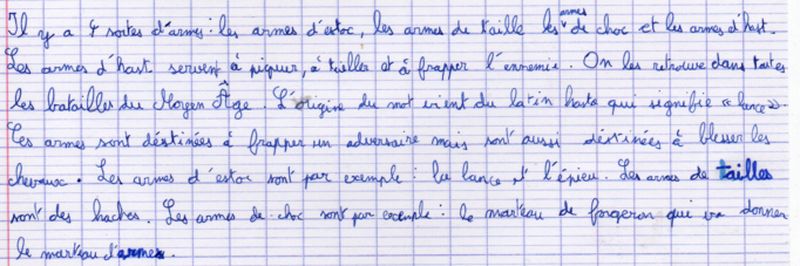 Il y a 4 sortes d'armes : les armes d'estoc, les armes de taille les armes de choc et les armes d'hast.
Les armes d'hast servent à piquer, à tailler et à frapper l'ennemie. On les retrouve dans toutes
les batailles du Moyen Âge. L'origine du mot vient du latin hasta qui signifie « lance ».
Ces armes sont déstinées à frapper un adversaire mais sont aussi déstinées à blesser les
chevaux. Les armes d'estoc sont par exemple : la lance et l'épieu. Les armes de tailles
sont des haches. Les armes de choc sont par exemple : le marteau de forgeron qui va donner
le marteau d'armes.